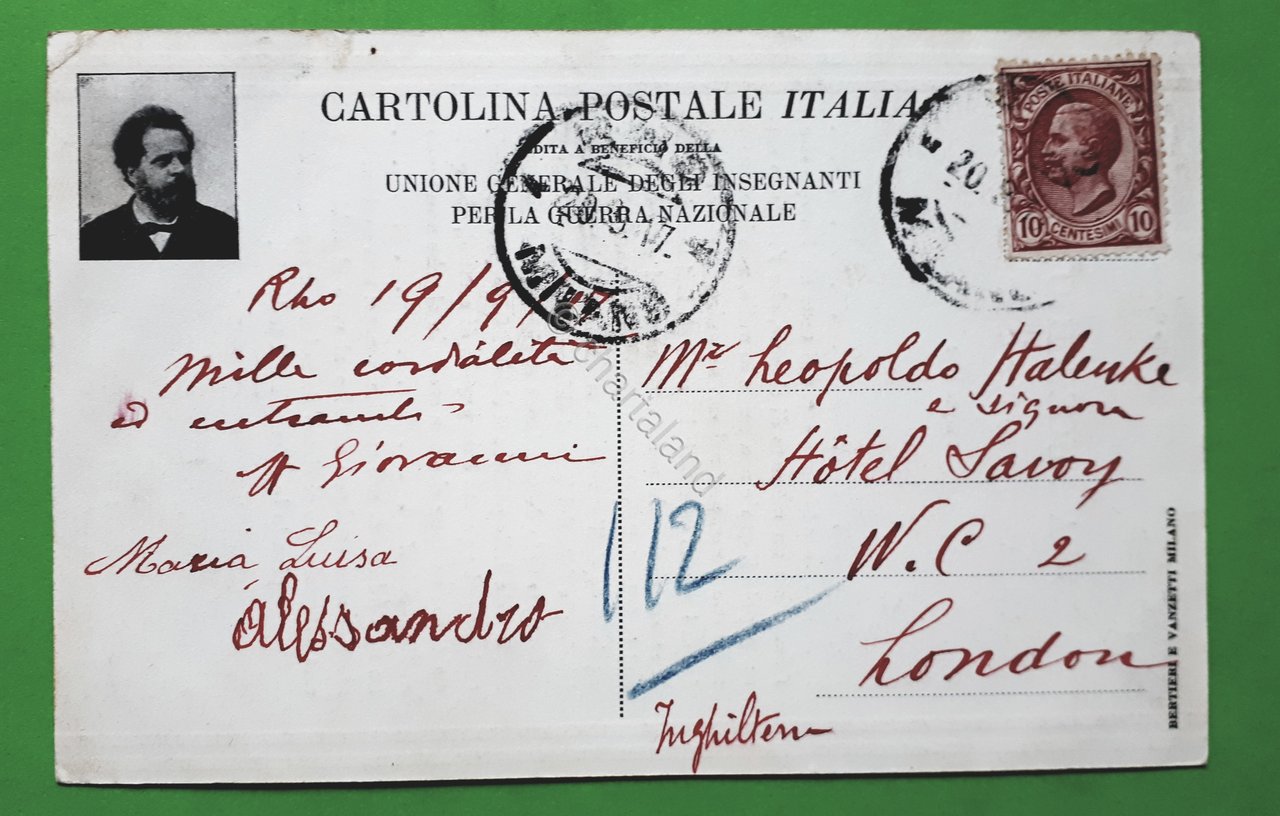 CARTOLINA POSTALE ITALIA
EDITA A BENEFICIO DELLA
UNIONE GENERALE DEGLI INSEGNANTI
PER LA GUERRA NAZIONALE
POSTE ITALIANE
10 CENTESIMI 10
20.
17.
Rho 19/9/17
Mille cordialità
ed entrambi
Giovanni
Maria Luisa
Alessandro
Mr Leopoldo Halenke
e signora
Hôtel Savoy
W.C 2
London
Inghilterra
112
BERTIERI E VANZETTI MILANO
© chartaland